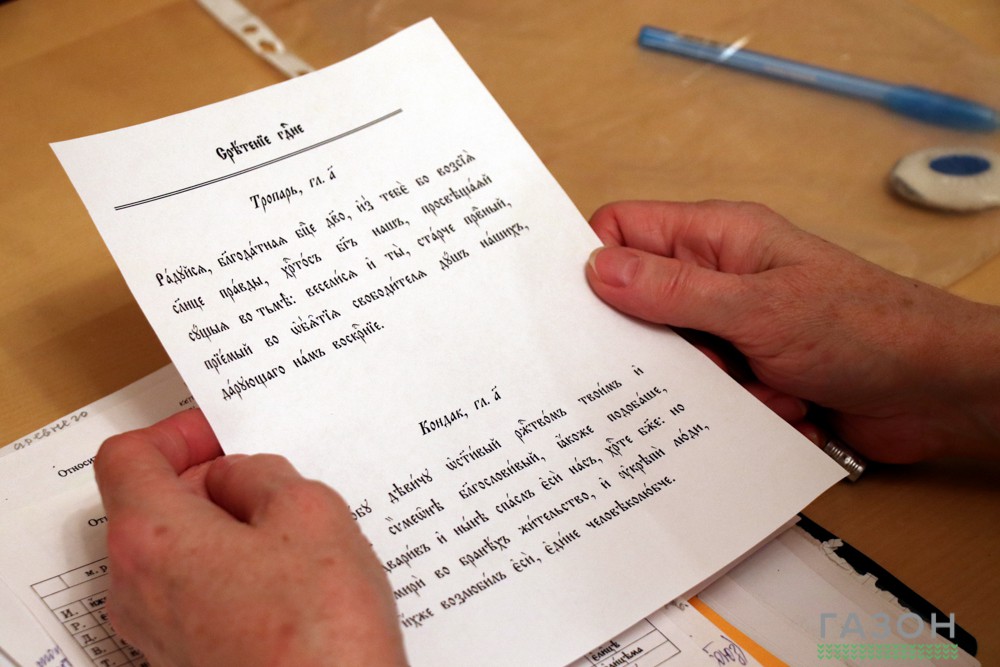 Срѣ́тенїе гдⷭ҇не
Тропарь, гл. а҃
Ра́дꙋйсѧ, бл҃года́тнаѧ бц҃е дв҃о, и҆з̾ тебє̀ бо возсїѧ̀
сл҃нце пра́вды, хрⷭ҇то́съ бг҃ъ на́шъ, просвѣща́ѧй
сꙋ́щыѧ во тьмѣ̀: весели́сѧ и҆ ты̀, ста́рче првⷣный,
прїе́мый во ѡ҆б̾ѧ̑тїѧ свободи́телѧ дꙋ́шъ на́шихъ,
да́рꙋющаго на́мъ воскрⷭ҇нїе.
Кондак, гл. а҃
дѣви́чꙋ ѡ҆ст҃и́вый ржⷭ҇тво́мъ твои́мъ и҆
сѷмеѡ́нѣ бл҃гослови́вый, ꙗ҆́коже подоба́ше,
и҆ ны́нѣ спа́слъ є҆сѝ на́съ, хрⷭ҇те́ бж҃е: но
во бра́нѣхъ жи́тельство, и҆ ᲂу҆крѣпѝ лю́ди,
возлюби́лъ є҆сѝ, є҆ди́не человѣколю́бче.
древнего
м. р
И.
Р.
Д.
В.
Т.
ГАЗОН